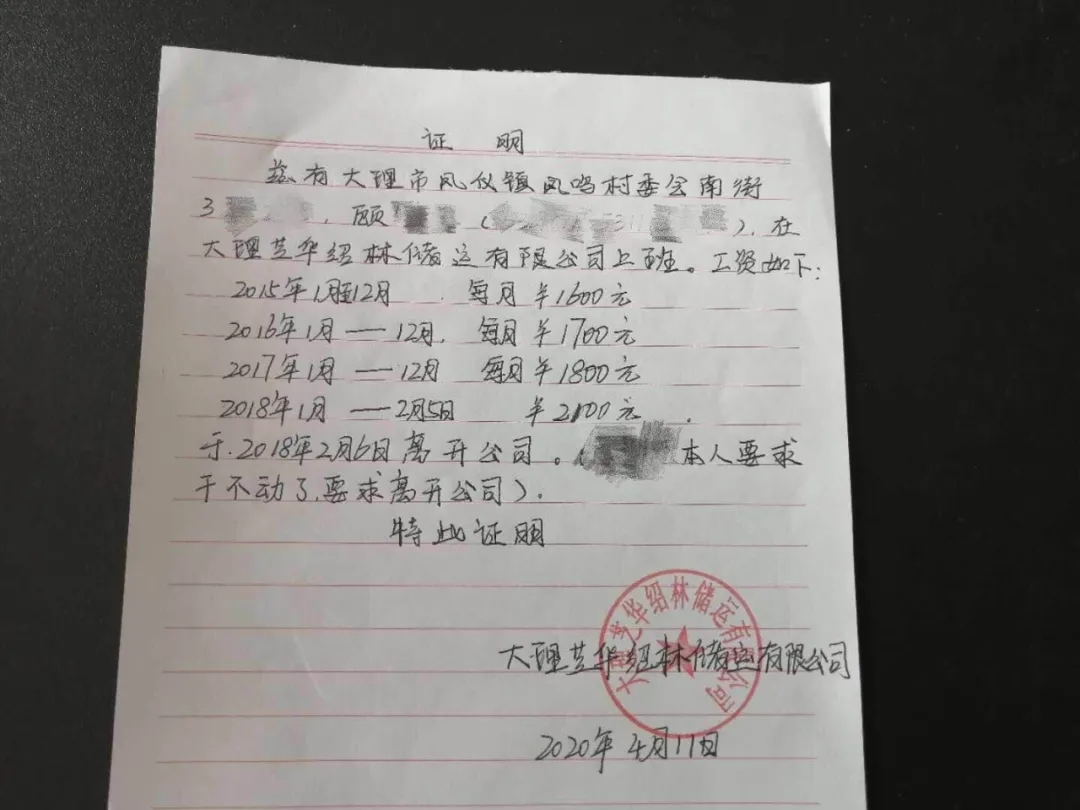 证 明
兹有大理市凤仪镇凤鸣村委会南街
3 , 顾 ( 311 ), 在
大理芝华绍林储运有限公司上班。工资如下:
2015年1月至12月 每月¥1600元
2016年1月——12月, 每月¥1700元
2017年1月——12月 每月¥1800元
2018年1月——2月5日 ¥2100元.
于.2018年2月6日离开公司。( 本人要求
干不动了,要求离开公司).
特此证明
大理芝华绍林储运有限公司
大理芝华绍林储运有限公司
2020年4月11日